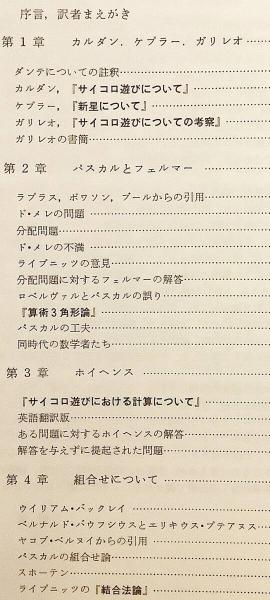 序言，訳者まえがき
第1章　カルダン．ケプラー．ガリレオ……
ダンテについての註釈……
カルダン，『サイコロ遊びについて』……
ケプラー，『新星について』……
ガリレオ，『サイコロ遊びについての考察』……
ガリレオの書簡……
第2章　パスカルとフェルマー……
ラプラス，ポワソン，ブールからの引用……
ド・メレの問題……
分配問題……
ド・メレの不満……
ライプニッツの意見……
分配問題に対するフェルマーの解答……
ロベルヴァルとパスカルの誤り……
『算術3角形論』……
パスカルの工夫……
同時代の数学者たち……
第3章　ホイヘンス……
『サイコロ遊びにおける計算について』……
英語翻訳版……
ある問題に対するホイヘンスの解答……
解答を与えずに提起された問題……
第4章　組合せについて……
ウイリアム・バックレイ……
ベルナルド・バウフシウスとエリキウス・プテアヌス……
ヤコブ・ベルヌイからの引用……
パスカルの組合せ論……
スホーテン……
ライプニッツの『結合法論』……